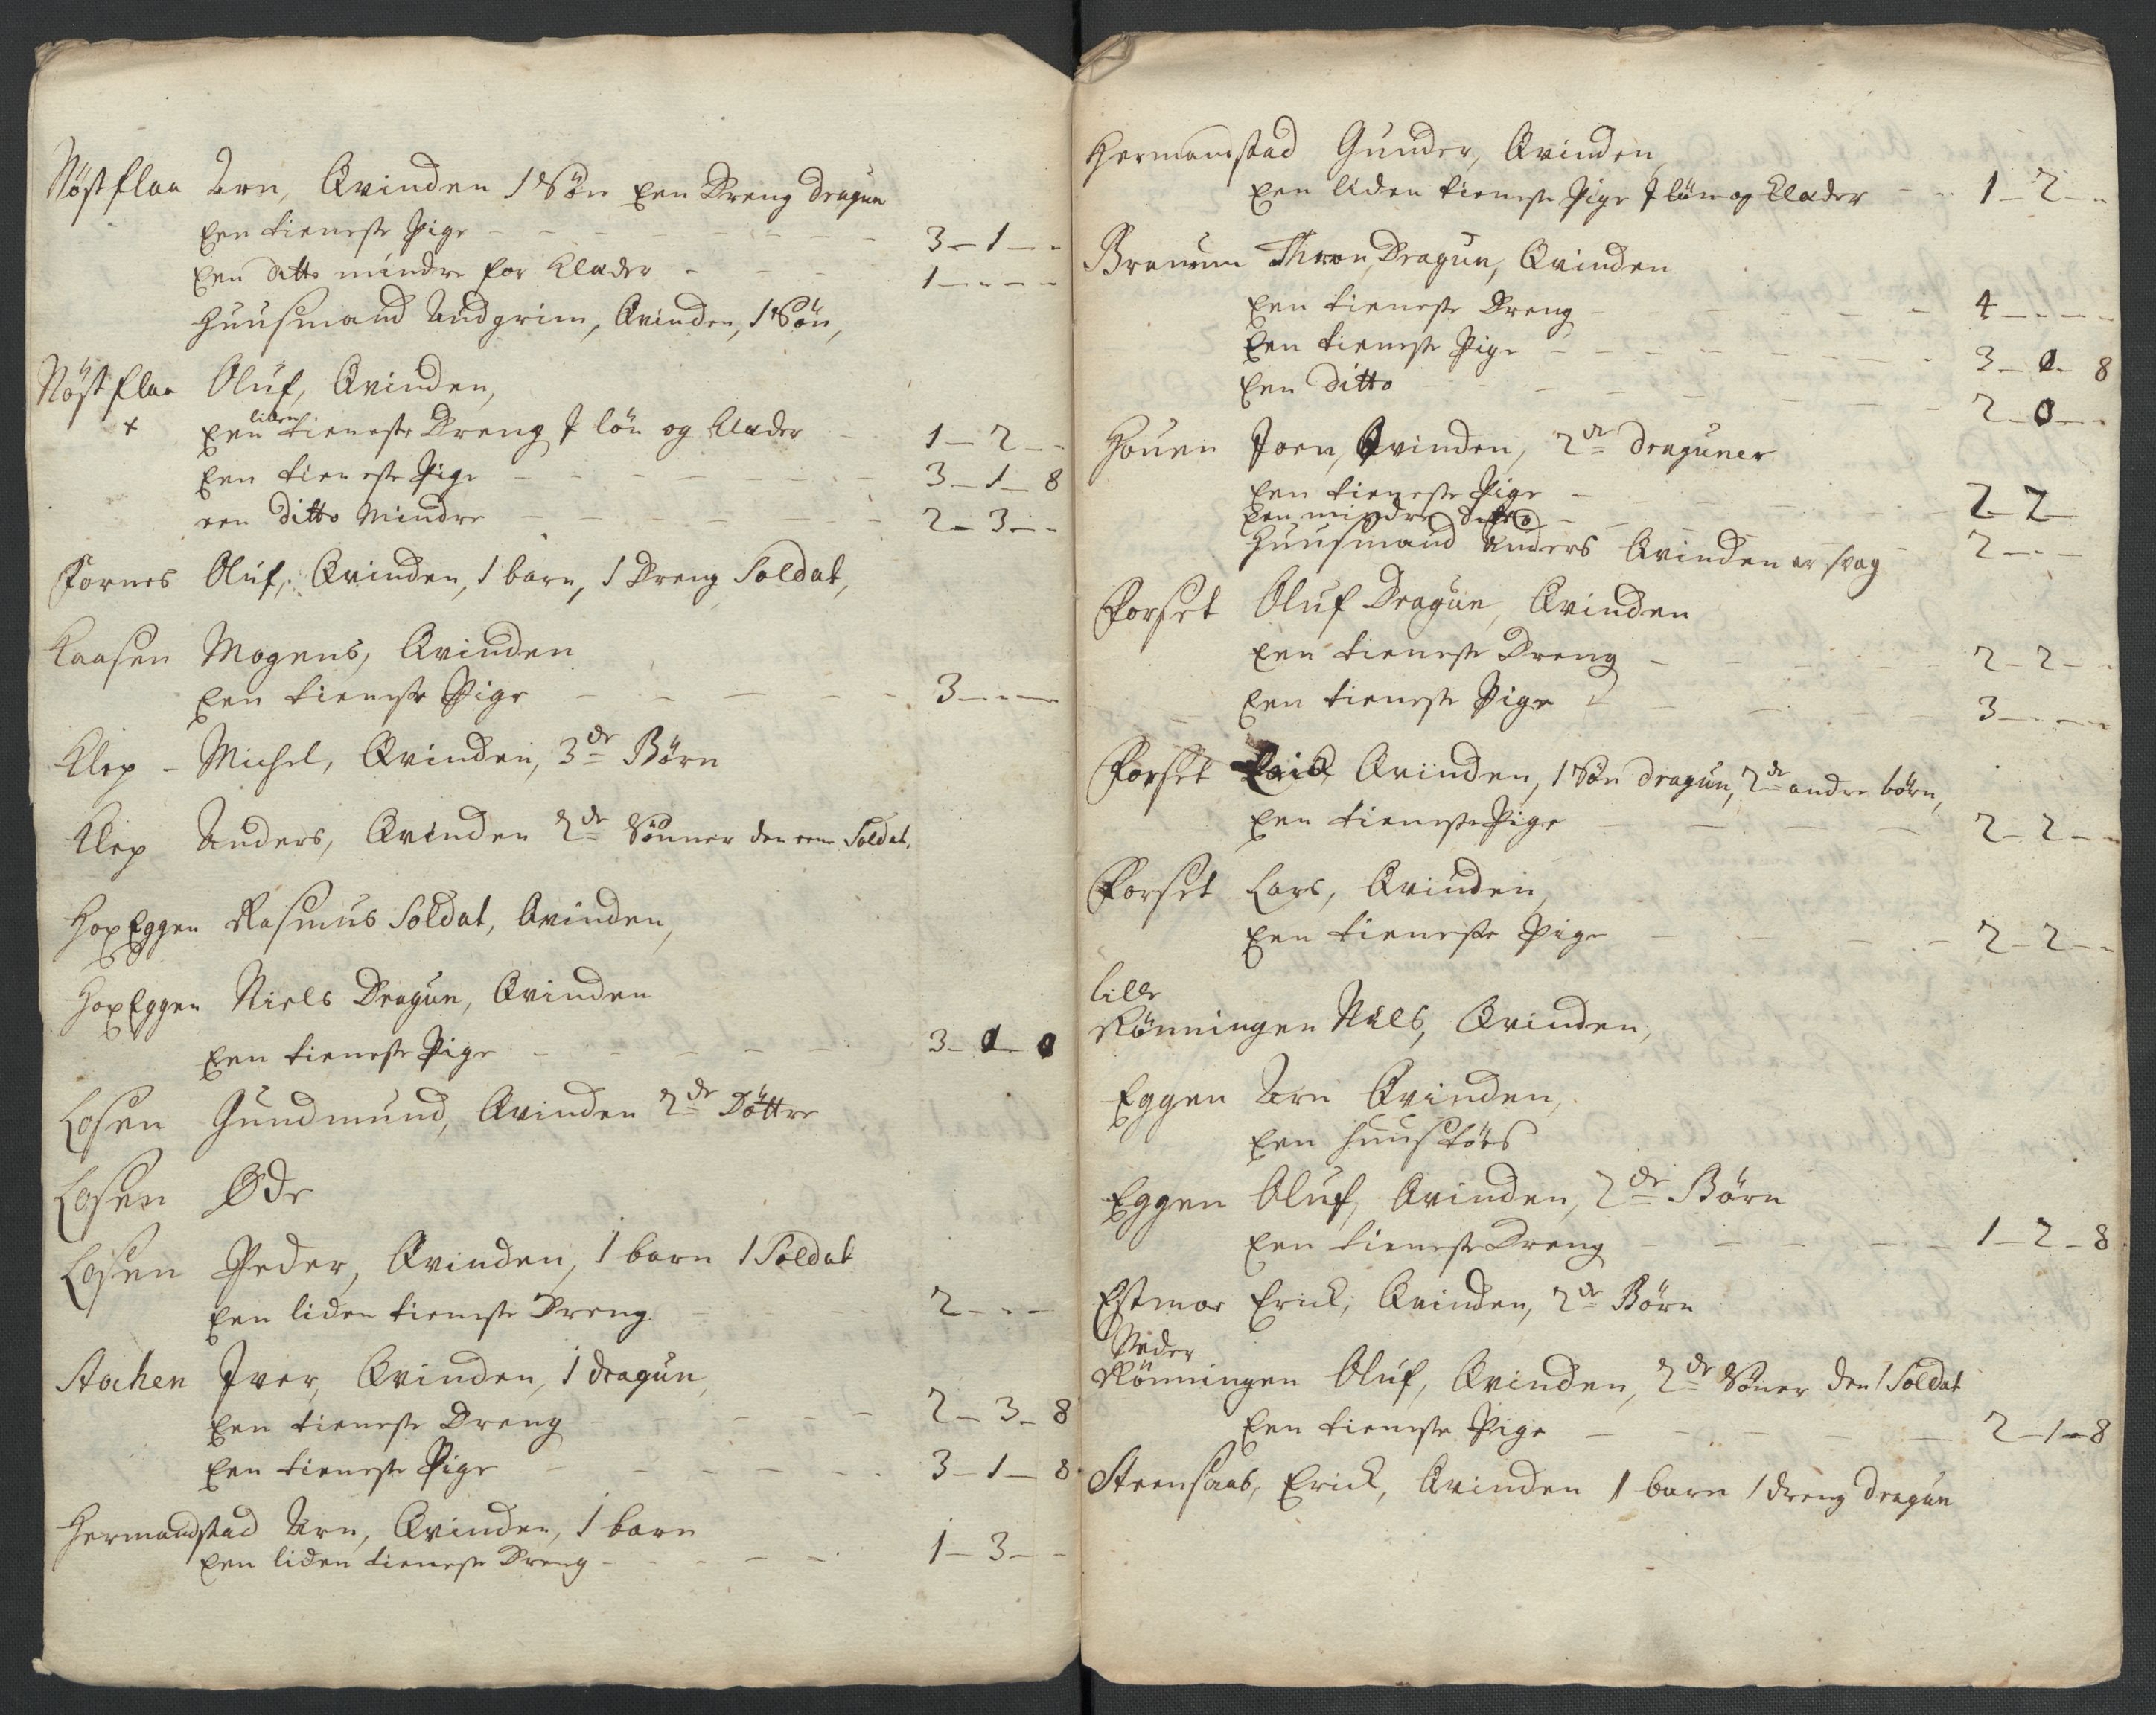 Nøstflaa Arn, Qvinden 1 Søn Een Dreng dragun
Een tieneste Pige - - - 3 - 1 - -
Een ditto mindre for Klæder - - - 1 - - - -
Huusmand Andgrim, Qvinden, 1 Søn,
Nøstflaa Oluf, Qvinden,
x Een liden tieneste Dreng I løn og Klæder - 1 - 2 - -
Een tieneste Pige - - - 3 - 1 - 8
een ditto Mindre - - - 2 - 3 - -
Fornes Oluf, Qvinden, 1 barn, 1 Dreng Soldat,
Kaasen Mogens, Qvinden
Een tieneste Pige - - - 3 - - -
Klep - Michel, Qvinden, 3de Børn
Klep Anders, Qvinden 2de Sønner den eene Soldat.
HopEggen Rasmus Soldat, Qvinden,
HopEggen Niels Dragun, Qvinden
Een tieneste Pige - - - 3 - 0 - 0
Losen Gundmund, Qvinden 2de Døttre
Losen Øde
Losen Peder, Qvinden, 1 barn 1 Soldat
Een liden tieneste Dreng - 2 - - -
Aachen Iver, Qvinden, 1 dragun,
Een tieneste Dreng - - - 2 - 3 - 8
Een tieneste Pige - - - 3 - 1 - 8
Hermandstad Arn, Qvinden, 1 barn
Een liden tieneste Dreng - - - 1 - 3 - -
Hermandstad Gunder, Qvinden,
Een liden tieneste Pige I løn og Klæder - - 1 - 2 - -
Braumn Thron Dragun, Qvinden
Een tieneste Dreng - - - 4 - - - -
Een tieneste Pige - - - 3 - 0 - 8
Een ditto - - - 2 - 0 - -
Houen Joen, Qvinden, 2de draguner
Een tieneste Pige - - - 2 - 2 -
Een mindre ditto - - - 2 - - -
Huusmand Anders Qvinden er svag
Forset Oluf Dragun, Qvinden
Een tieneste Dreng - - - 2 - 2 - -
Een tieneste Pige - - - 3 - - - -
Forset Qvinden, 1 Søn dragun, 2de andre børn,
Een tieneste Pige - - - 2 - 2 - -
Forset Lars, Qvinden,
Een tieneste Pige - - - 2 - 2 - -
lille
Rønningen Nils, Qvinden,
Eggen Arn Qvinden,
Een huustøes
Eggen Oluf, Qvinden, 2de Børn
Een tieneste Dreng - - - 1 - 2 - 8
Estmoe Erick, Qvinden, 2de Børn
Neder
Rønningen Oluf, Qvinden, 2de Søner den 1 Soldat
Een tieneste Pige - - - 2 - 1 - 8
Steensaas, Erick, Qvinden 1 barn 1 dreng dragun